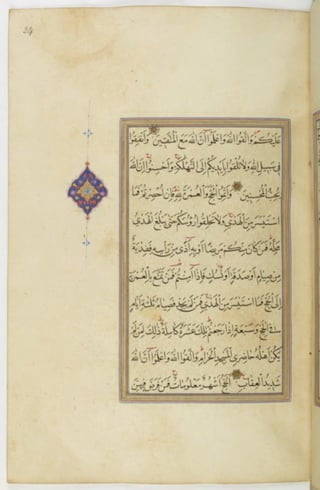 24
عَلَيْكُمْ وَاتَّقُوا اللَّهَ وَاعْلَمُوا أَنَّ اللَّهَ مَعَ الْمُتَّقِينَ وَأَنْفِقُوا
فِي سَبِيلِ اللَّهِ وَلَا تُلْقُوا بِأَيْدِيكُمْ إِلَى التَّهْلُكَةِ وَأَحْسِنُوا إِنَّ اللَّهَ
يُحِبُّ الْمُحْسِنِينَ وَأَتِمُّوا الْحَجَّ وَالْعُمْرَةَ لِلَّهِ فَإِنْ أُحْصِرْتُمْ فَمَا
اسْتَيْسَرَ مِنَ الْهَدْيِ وَلَا تَحْلِقُوا رُؤُسَكُمْ حَتَّى يَبْلُغَ الْهَدْيُ
مَحِلَّهُ فَمَنْ كَانَ مِنْكُمْ مَرِيضًا أَوْ بِهِ أَذًى مِنْ رَأْسِهِ فَفِدْيَةٌ
مِنْ صِيَامٍ أَوْ صَدَقَةٍ أَوْ نُسُكٍ فَإِذَا أَمِنْتُمْ فَمَنْ تَمَتَّعَ بِالْعُمْرَةِ
إِلَى الْحَجِّ فَمَا اسْتَيْسَرَ مِنَ الْهَدْيِ فَمَنْ لَمْ يَجِدْ فَصِيَامُ ثَلٰثَةِ أَيَّامٍ
فِي الْحَجِّ وَسَبْعَةٍ إِذَا رَجَعْتُمْ تِلْكَ عَشَرَةٌ كَامِلَةٌ ذَلِكَ لِمَنْ لَمْ
يَكُنْ أَهْلُهُ حَاضِرِي الْمَسْجِدِ الْحَرَامِ وَاتَّقُوا اللَّهَ وَاعْلَمُوا أَنَّ اللَّهَ
شَدِيدُ الْعِقَابِ الْحَجُّ أَشْهُرٌ مَعْلُومَاتٌ فَمَنْ فَرَضَ فِيهِنَّ